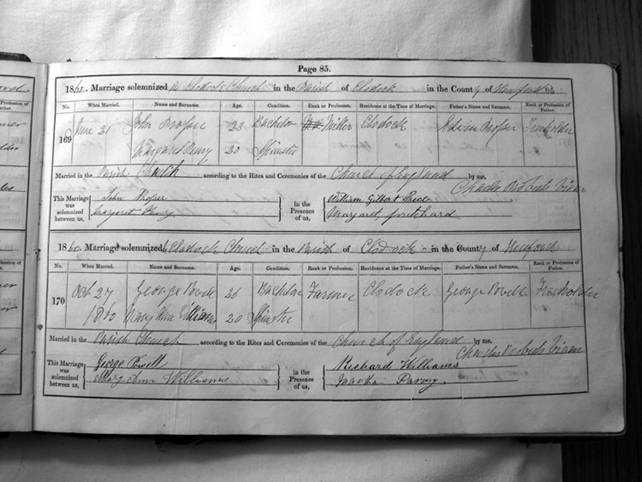 Page 85.
1860. Marriage solemnized at Clodock Church in the Parish of Clodock in the County of Hereford
No. When Married. Name and Surname. Age. Condition. Rank or Profession. Residence at the Time of Marriage. Father's Name and Surname. Rank or Profession of Father.
169 June 21 John Prosser 23 Bachelor Miller Clodock Prosser Freeholder
Margaret 23 Spinster
Married in the Parish Church according to the Rites and Ceremonies of the Church of England by me,
This Marriage was solemnized between us, John Prosser In the Presence of us, William Gilbert
Margaret Margaret Pritchard
1860. Marriage solemnized at Clodock Church in the Parish of Clodock in the County of Hereford
No. When Married. Name and Surname. Age. Condition. Rank or Profession. Residence at the Time of Marriage. Father's Name and Surname. Rank or Profession of Father.
170 Oct 27 George Powell 26 Bachelor Farmer Clodock George Powell Freeholder
1860 Mary Ann Williams 20 Spinster
Married in the Parish Church according to the Rites and Ceremonies of the Church of England by me,
This Marriage was solemnized between us, George Powell in the Presence of us, Richard Williams
Mary Ann Williams